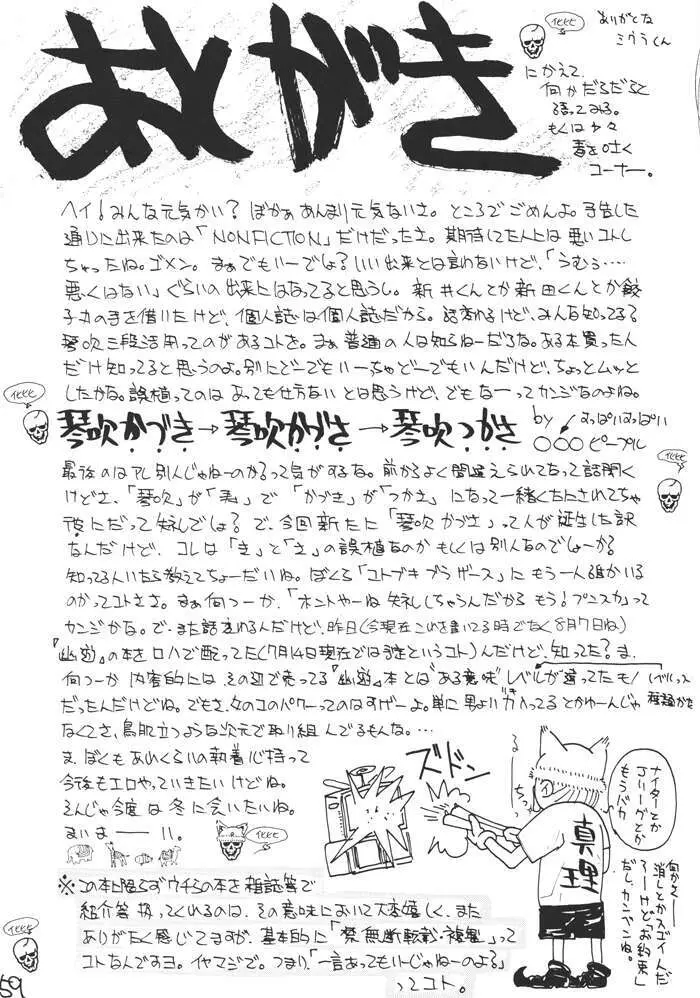 あとがき
ありがとな
ミウラくん
にかえて、
何かだらだらと
語ってみる。
もしくは少々
毒を吐く
コーナー。
ヘイ!みんな元気かい?ぼかぁあんまり元気ないさ。ところでごめんよ。予告した
通りに出来たのは「NONFICTION」だけだったさ。期待してた人には悪いコトし
ちゃったね。ゴメン。まぁでもいーでしょ?いい出来とは言わないけど、「うむぅ‥‥
悪くはない」ぐらいの出来にはなってると思うし。新井くんとか新田くんとか餃
子の手を借りたけど、個人誌は個人誌だから。話変わるけど、みんな知ってる?
琴吹三段活用ってのがあるコトを。まぁ普通の人は知らねーだろな。ある本買った人
だけ知ってると思うのよ。別にどーでもいーちゃどーでもいんだけど、ちょっとムッと
したかな。誤植ってのはあっても仕方ないとは思うけど、でもなーってカンジなのよね。
琴吹かづき→琴吹かづさ→琴吹つかさ
by
○○○ピープル
最後のはアレ別人じゃねーのか?って気がするな。前からよく間違えられてなって話聞く
けどさ、「琴吹」が「
」で「かづき」が「つかさ」になって一緒くたにされてちゃ
彼にだって失礼でしょ?で、今回新たに「琴吹かづさ」って人が誕生した訳
なんだけど、コレは「き」と「さ」の誤植なのかもしくは別人なのでしょーか?
知ってる人いたら教えてちょーだいね。ぼくら「コトブキブラザース」にもう一人誰かいる
のかってコトさ。まぁ何つーか、「ホントやーね失礼しちゃうんだからもう!プンスカ」って
カンジかな。で、また話変わるんだけど、昨日(今現在これを書いてる時でなく8月7日ね)
『幽遊』の本をロハで配ってた(7月14日現在では予定というコト)んだけど、知った?ま、
何つーか内容的にはその辺で売ってる『幽遊』本とは“ある意味”レベルが違ってたモノ
だったんだけどね。でもさ、女のコのパワーってのはすげーよ。単に男より力入ってるとかゆーんじゃ
なくてさ、鳥肌立つような次元で取り組んでるもんな…
ま、ぼくもあれくらいの執着心持って
今後もエロやっていきたいけどね。
そんじゃ今度は冬に会いたいね。
まいまーーい。
ズドン
るっ
ちっ
ナイターとか
Jリーグとか
もうバカ
真理
何かさー
消しとかスゴイんだ
ろーけど「お約束」
だし、カンベンね。
※この本に限らずウチらの本を雑誌等で
紹介等扱ってくれるのは、その意味において大変嬉しく、また
ありがたく感じてますが、基本的に「禁無断転載・複製」って
コトなんですヨ。イヤマジで。つまり、「一言あってもいーじゃねーのよる?」
ってコト。
59